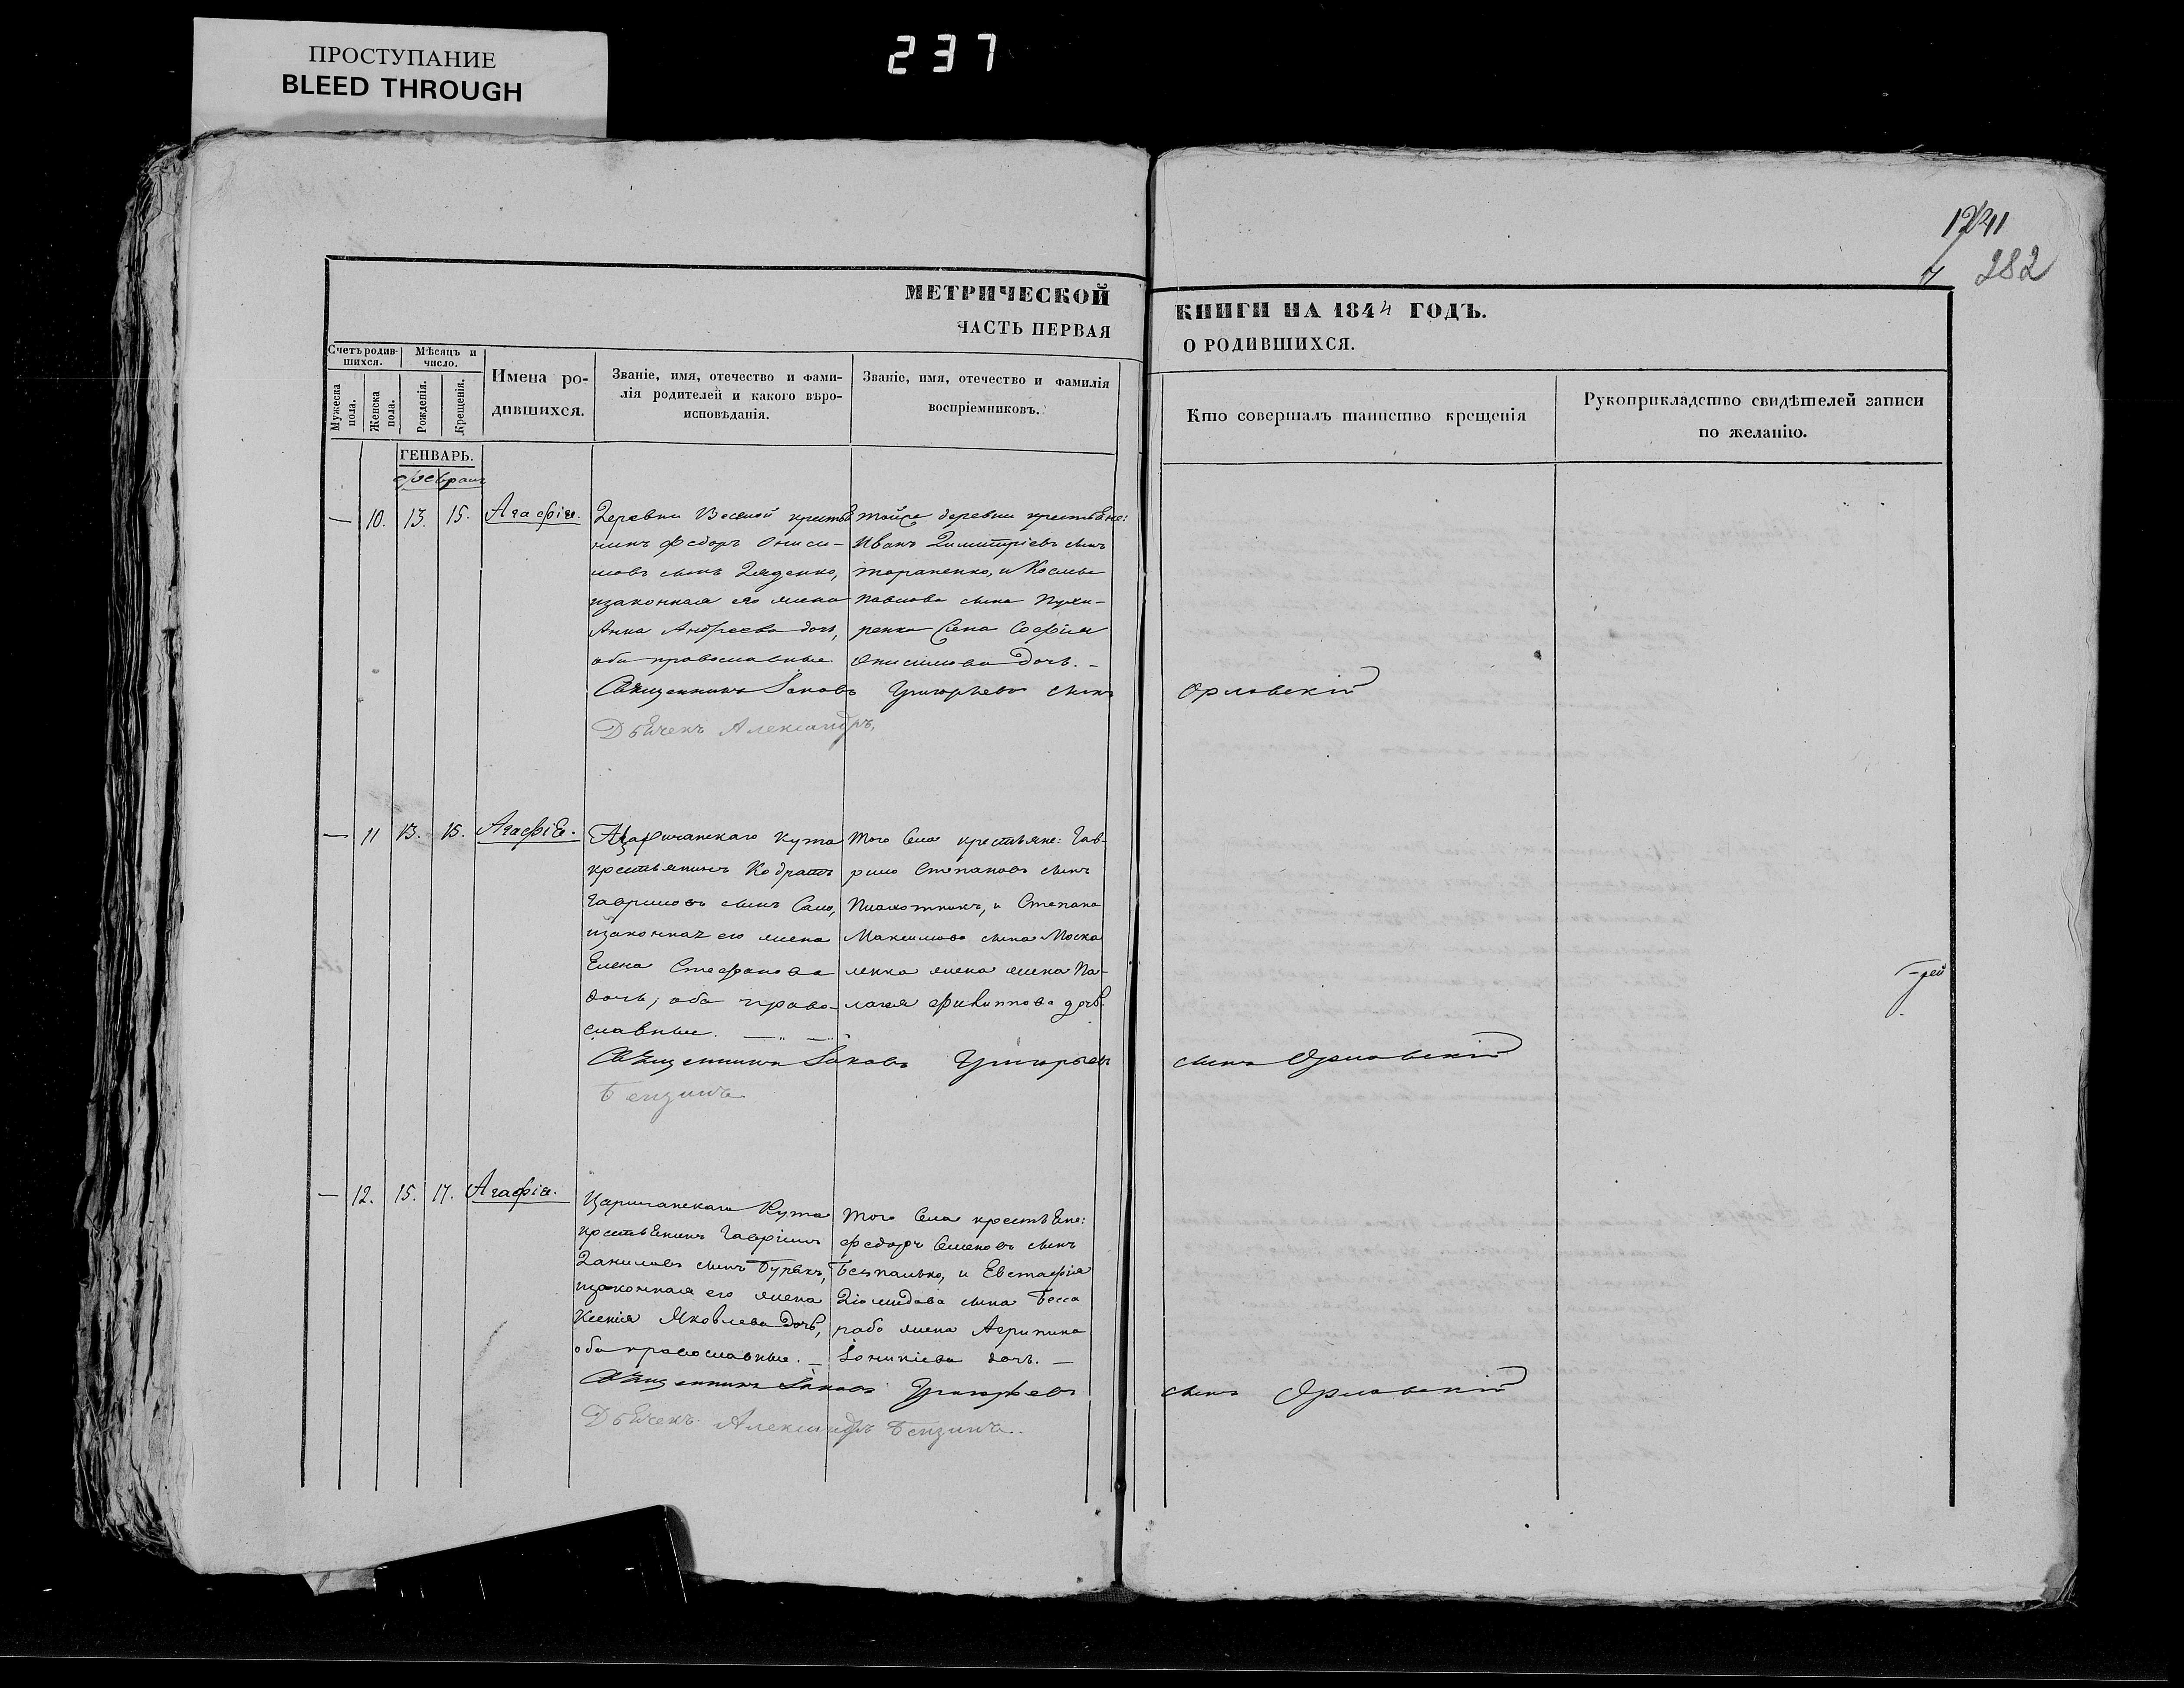 ПРОСТУПАНИЕ
BLEED THROUGH
237
1241
282
МЕТРИЧЕСКОЙ
КНИГИ НА 1844 ГОДЪ.
ЧАСТЬ ПЕРВАЯ
О РОДИВШИХСЯ.
Счетъ родив-
шихся.
Мѣсяцъ и
число.
Мужеска
пола.
Женска
пола.
Рожденія.
Крещенія.
Имена ро-
дившихся.
Званіе, имя, отечество и фами-
лія родителей и какого вѣро-
исповѣданія.
Званіе, имя, отечество и фамилія
воспріемниковъ.
Кто совершалъ таинство крещенія
Рукоприкладство свидѣтелей записи
по желанію.
ГЕНВАРЬ.
— 10. 13. 15. Агафія.
Деревни крестья
нинъ Федоръ Ониси-
мовъ сынъ Дяденко,
изаконная его жена
Анна Андреева дочь,
оба православные
тойже деревни крестьяне:
Иванъ Димитріевъ сынъ
тараненко, и Космы
Павлова сына
ренка Софія
Онисимова дочь. —
Священникъ Іаковъ Григорьевъ сынъ Орловскій
Дьячекъ Александръ,
— 11 13. 15. Агафія.
Царичанскаго Кута
крестьянинъ Кодратъ
Гавриловъ сынъ Сало,
изаконная его жена
Елена Стефанова
дочь, оба право-
славные.
Того Села крестьяне: Гав-
рило Степановъ сынъ
Плахотникъ, и Степана
Максимова сына Моска
ленка жена жена Па-
лагея Филиппова дочь.
Священникъ Іаковъ Григорьевъ сынъ Орловскій
Бензинъ
— 12. 15. 17. Агафія.
Царичанскаго Кута
крестьянинъ Гавріилъ
Даниловъ сынъ Бурякъ,
изаконная его жена
Ксенія Яковлева дочь,
оба православные. —
Того Села крестьяне:
Федоръ Семеновъ сынъ
Безпалько, и Евстафія
Діомидова сына Бесса
рабо жена Агрипина
Іоникіева дочь. —
Священникъ Іаковъ Григорьевъ сынъ Орловскій
Дьячекъ Александръ Бензинъ.